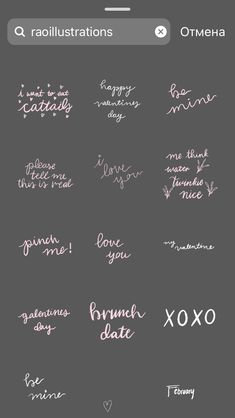 raoillustrations Отмена
i want to eat
cattails
happy
valentines
day
be
mine
please
tell me
this is real
i love
you
me think
water
twinkie
nice
pinch
me!
love
you
my valentine
galentines
day
brunch
date
XOXO
be
mine
February